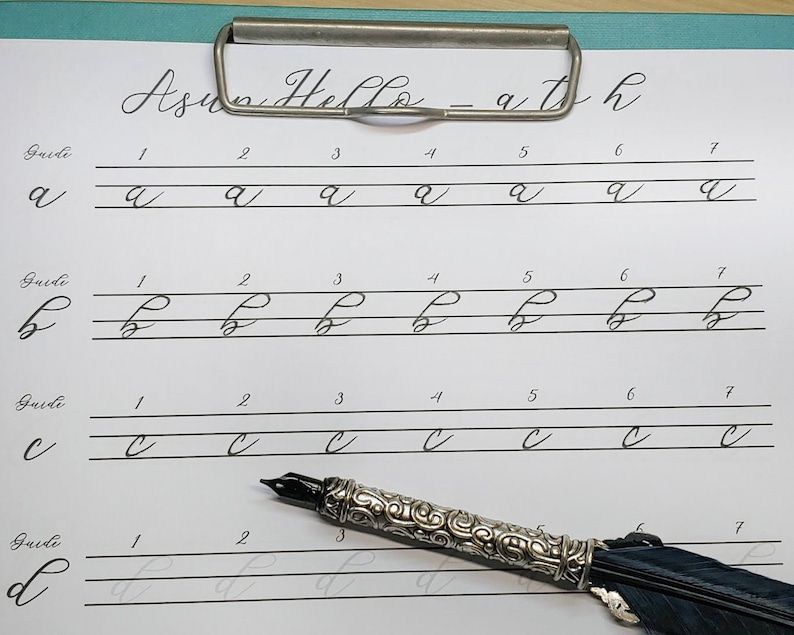 Asun Hello - a to h
Guide 1 2 3 4 5 6 7
a a a a a a a a
Guide 1 2 3 4 5 6 7
b b b b b b b b
Guide 1 2 3 4 5 6 7
c c c c c c c c
Guide 1 2 3 5 6 7
d d d d d d